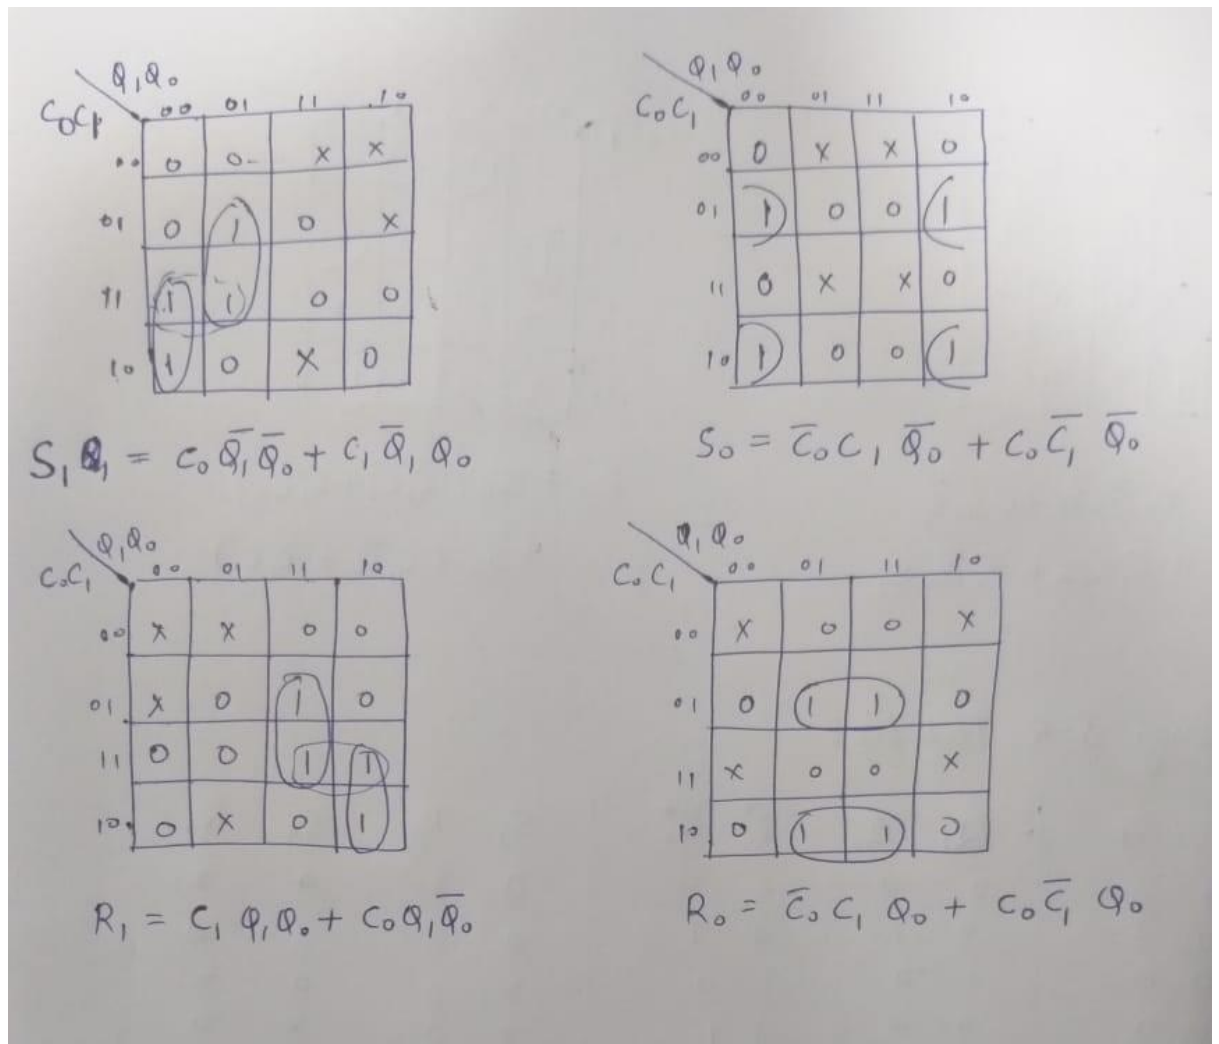 Q₁Q₀
C₀C₁ 00 01 11 10
00 0 0 X X
01 0 1 0 X
11 1 1 0 0
10 1 0 X 0
S₁ = C₀ Q̅₁ Q̅₀ + C₁ Q̅₁ Q₀
Q₁Q₀
C₀C₁ 00 01 11 10
00 0 X X 0
01 1 0 0 1
11 0 X X 0
10 1 0 0 1
S₀ = C̅₀ C₁ Q̅₀ + C₀ C̅₁ Q̅₀
Q₁Q₀
C₀C₁ 00 01 11 10
00 X X 0 0
01 X 0 1 0
11 0 0 1 1
10 0 X 0 1
R₁ = C₁ Q₁Q₀ + C₀Q₁Q̅₀
Q₁Q₀
C₀C₁ 00 01 11 10
00 X 0 0 X
01 0 1 1 0
11 X 0 0 X
10 0 1 1 0
R₀ = C̅₀ C₁ Q₀ + C₀ C̅₁ Q₀